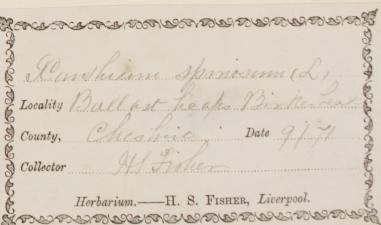 Xanthium spinosum (L)
Locality Ballast heaps Birkenhead
County, Cheshire Date 9/71
Collector HS Fisher
Herbarium.——H. S. FISHER, Liverpool.